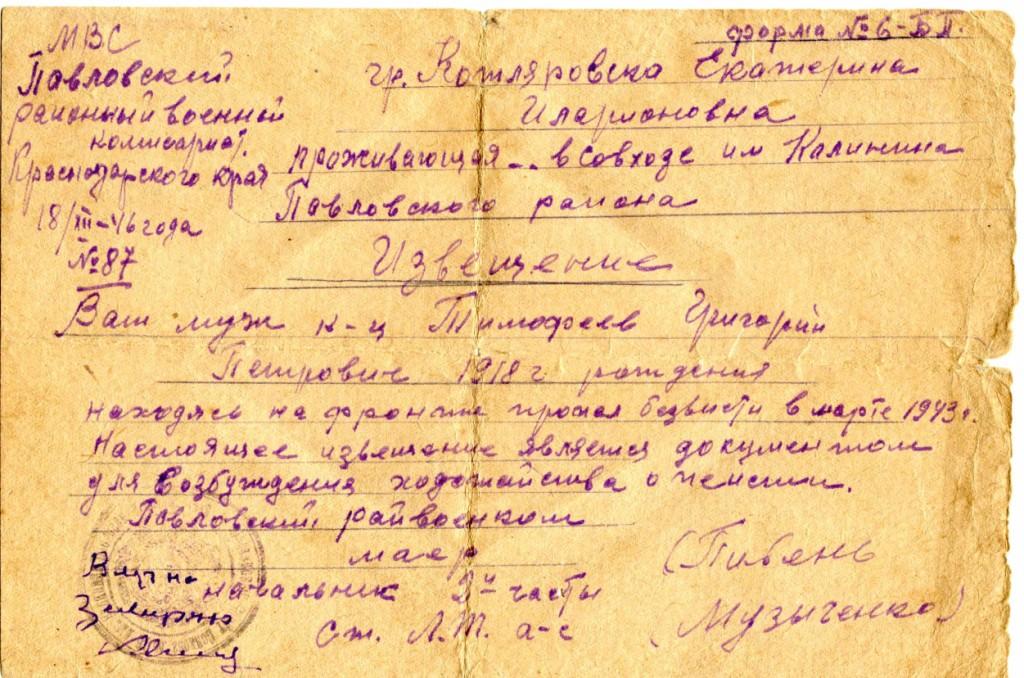 форма № 6-БП.
МВС
Павловский
районный военной
комисариат.
Краснодарского края
18/XII-46 года
№ 87
гр. Котляровска Екатерина
Иларионовна
проживающая - в совхозе им Калинина
Павловского района
Извещение
Ваш муж к-ц Тимофеев Григорий
Петрович 1918 г рождения
находясь на фронте пропал безвисти в марте 1943 г.
Настоящее извещение является документом
для возбуждения ходотайства о пенсии.
Павловский райвоенком
маер (Пивень
начальник 2й часты
Ст. Л.Т. а-с (Музыченко)